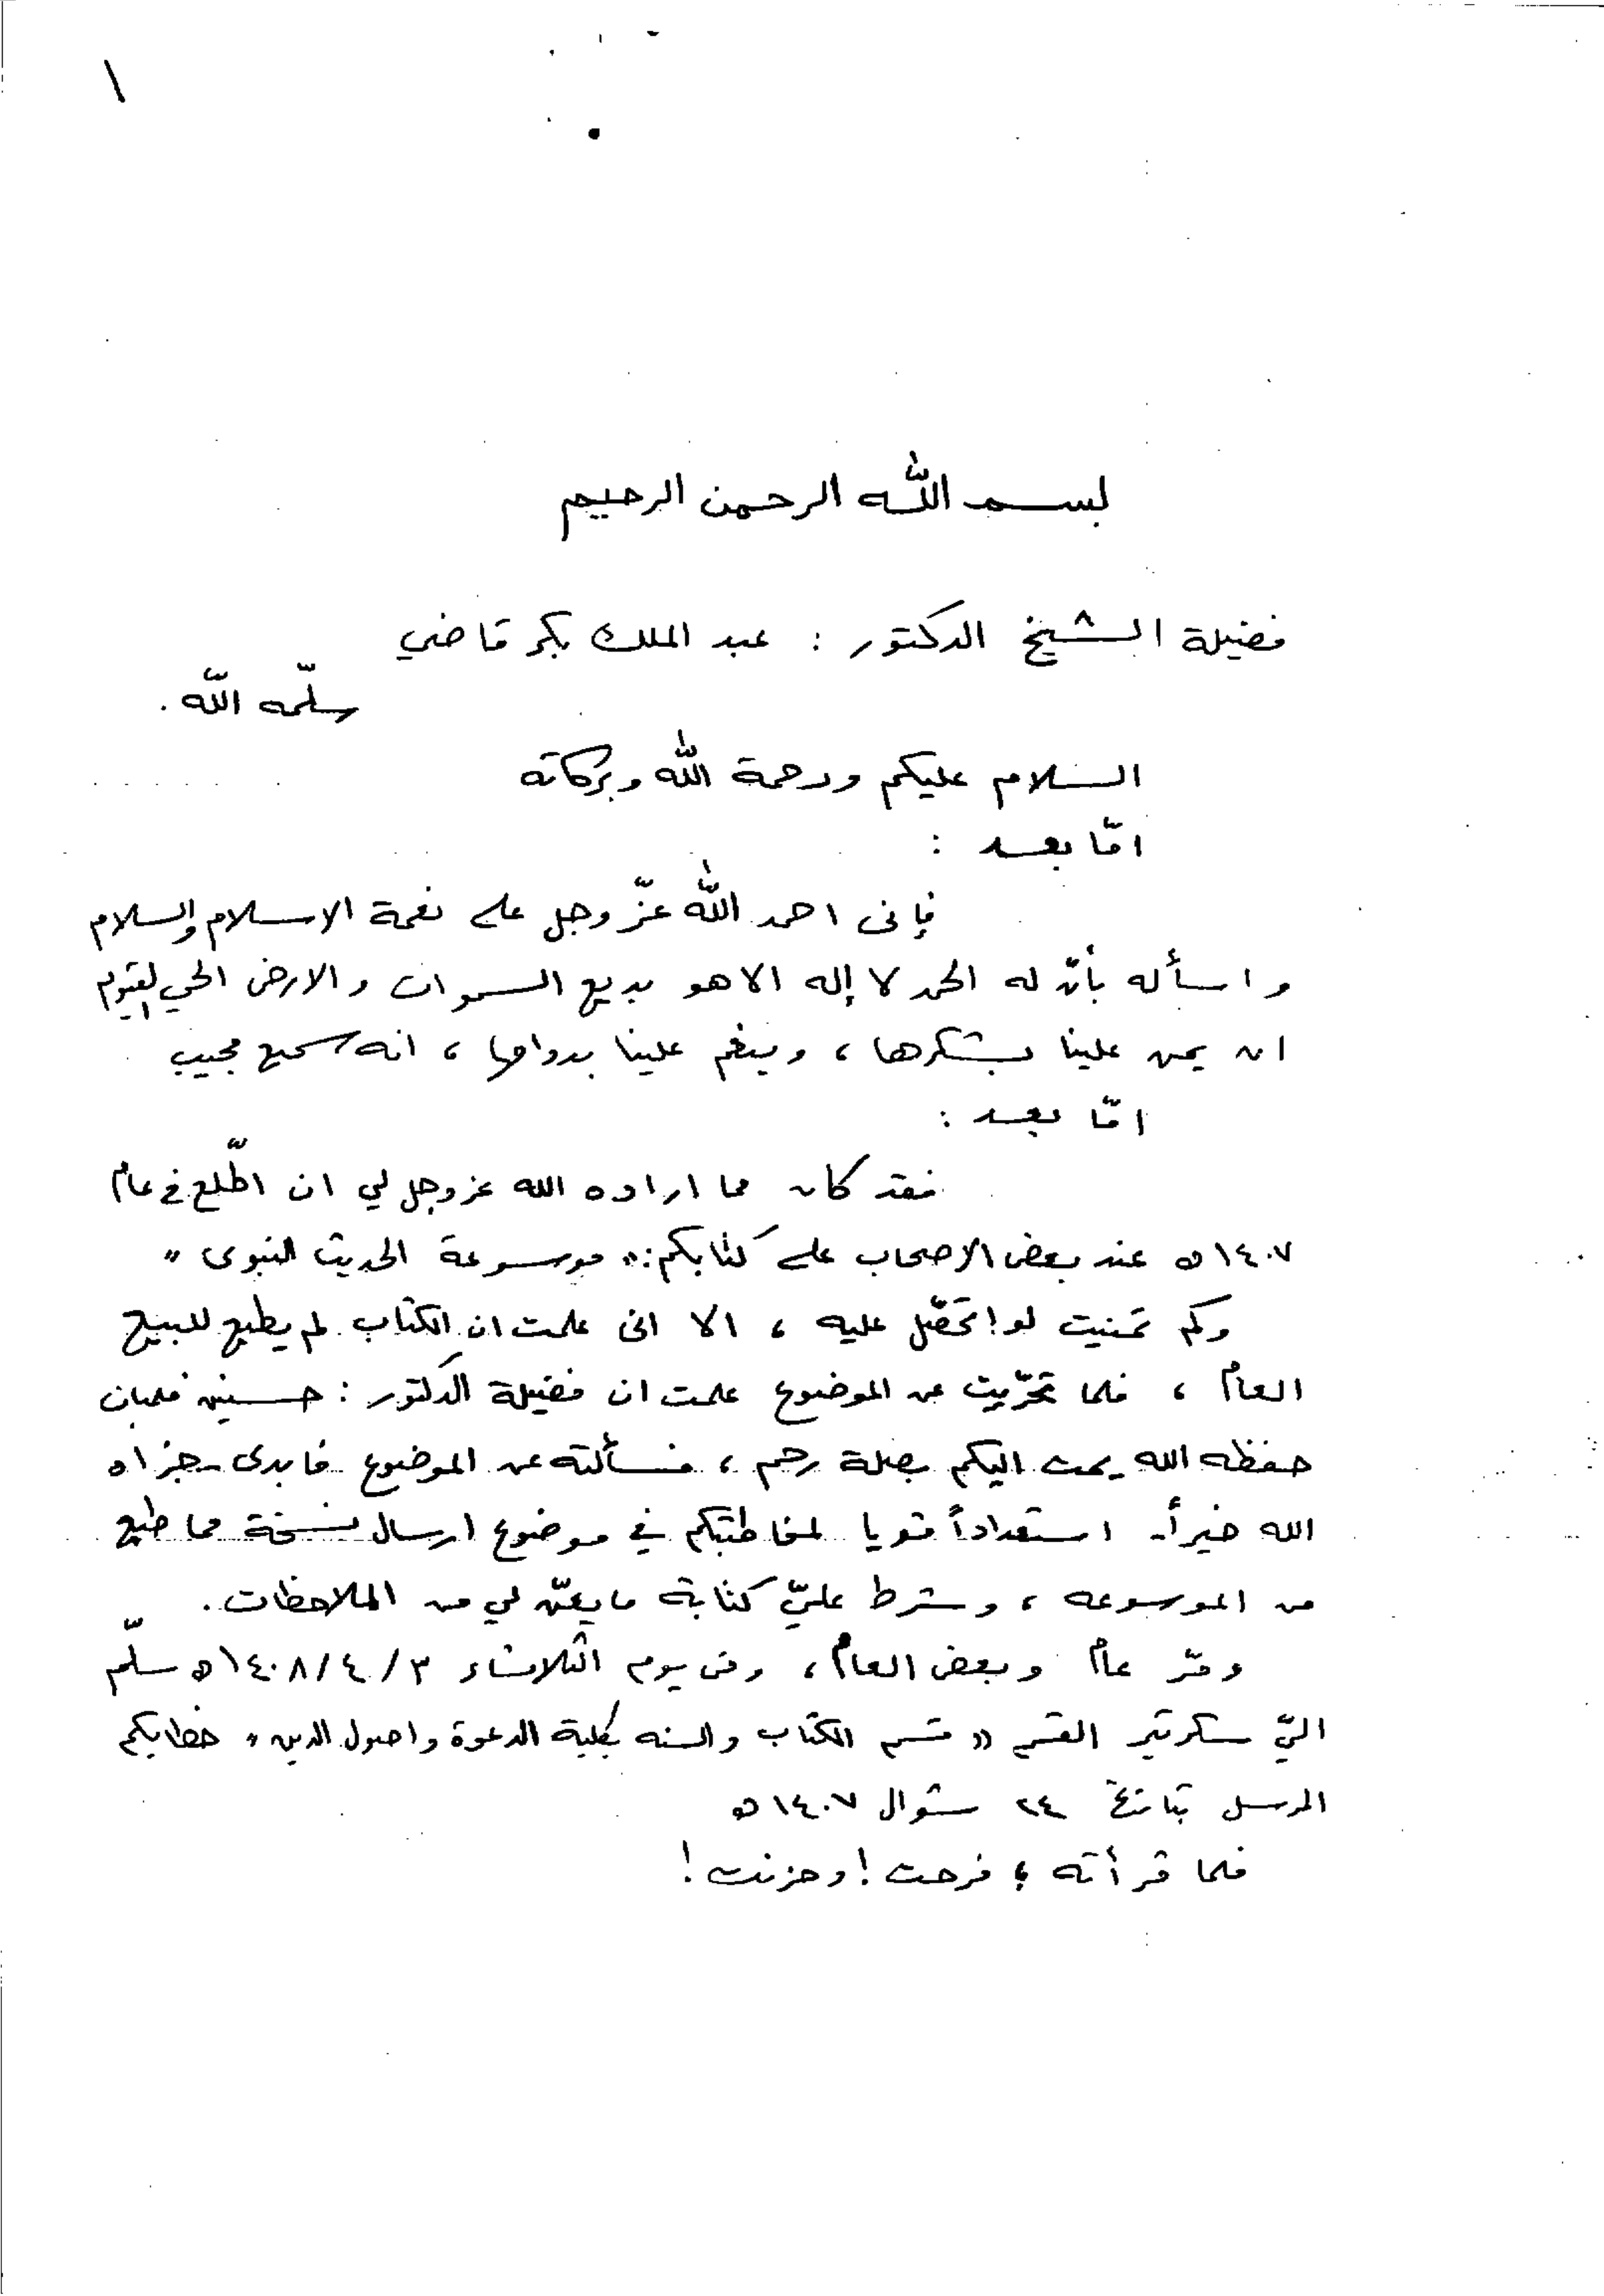 ١
بسم الله الرحمن الرحيم
فضيلة الشيخ الدكتور : عبد الملك بكر قاضي
سلّمه اللّه .
السلام عليكم ورحمة اللّه وبركاته
امّا بعد :
فإنى احمد اللّه عزّ وجل على نعمة الاسلام والسلام
واسأله بأنّ له الحمد لا إله الا هو بديع السموات والارض الحي القيوم
ان يمن علينا بشكرها ، وينعم علينا بدوامها ، انه سميع مجيب
امّا بعد :
فقد كان مما اراده الله عزوجل لي ان اطّلع في عام
١٤٠٧ه عند بعض الاصحاب على كتابكم : « موسوعة الحديث النبوى »
وكم تمنيت لو اتحصّل عليه ، الا انى علمت ان الكتاب لم يطبع للبيع
العام ، فلما تحرّيت عن الموضوع علمت ان فضيلة الدكتور : حسين فلمبان
حفظه الله يمت اليكم بصلة رحم ، فسألته عن الموضوع فابدى - جزاه
الله خيرأ - استعداداً قويا لمخاطبتكم في موضوع ارسال نسخة مما طبع
من الموسوعه ، وشرط عليّ كتابة ما يعنّ لي من الملاحظات .
ومرّ عام وبعض العام ، وفى يوم الثلاثاء ٣/٤/١٤٠٨ه سلّم
اليّ سكرتير القسم « قسم الكتاب والسنه بكلية الدعوة واصول الدين » خطابكم
المرسل بتاريخ ٢٤ شوال ١٤٠٧ه
فلما قرأته ؛ فرحت ! وحزنت !